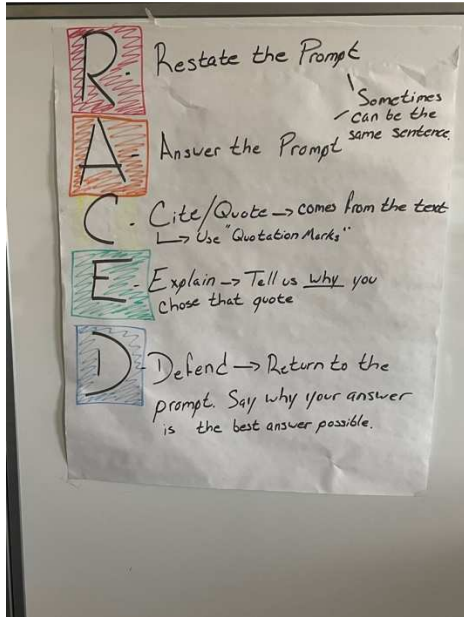 R - Restate the Prompt
Sometimes
can be the
same sentence.
A - Answer the Prompt
C - Cite/Quote → comes from the text
↳ Use "Quotation Marks"
E - Explain → Tell us why you
chose that quote
D - Defend → Return to the
prompt. Say why your answer
is the best answer possible.